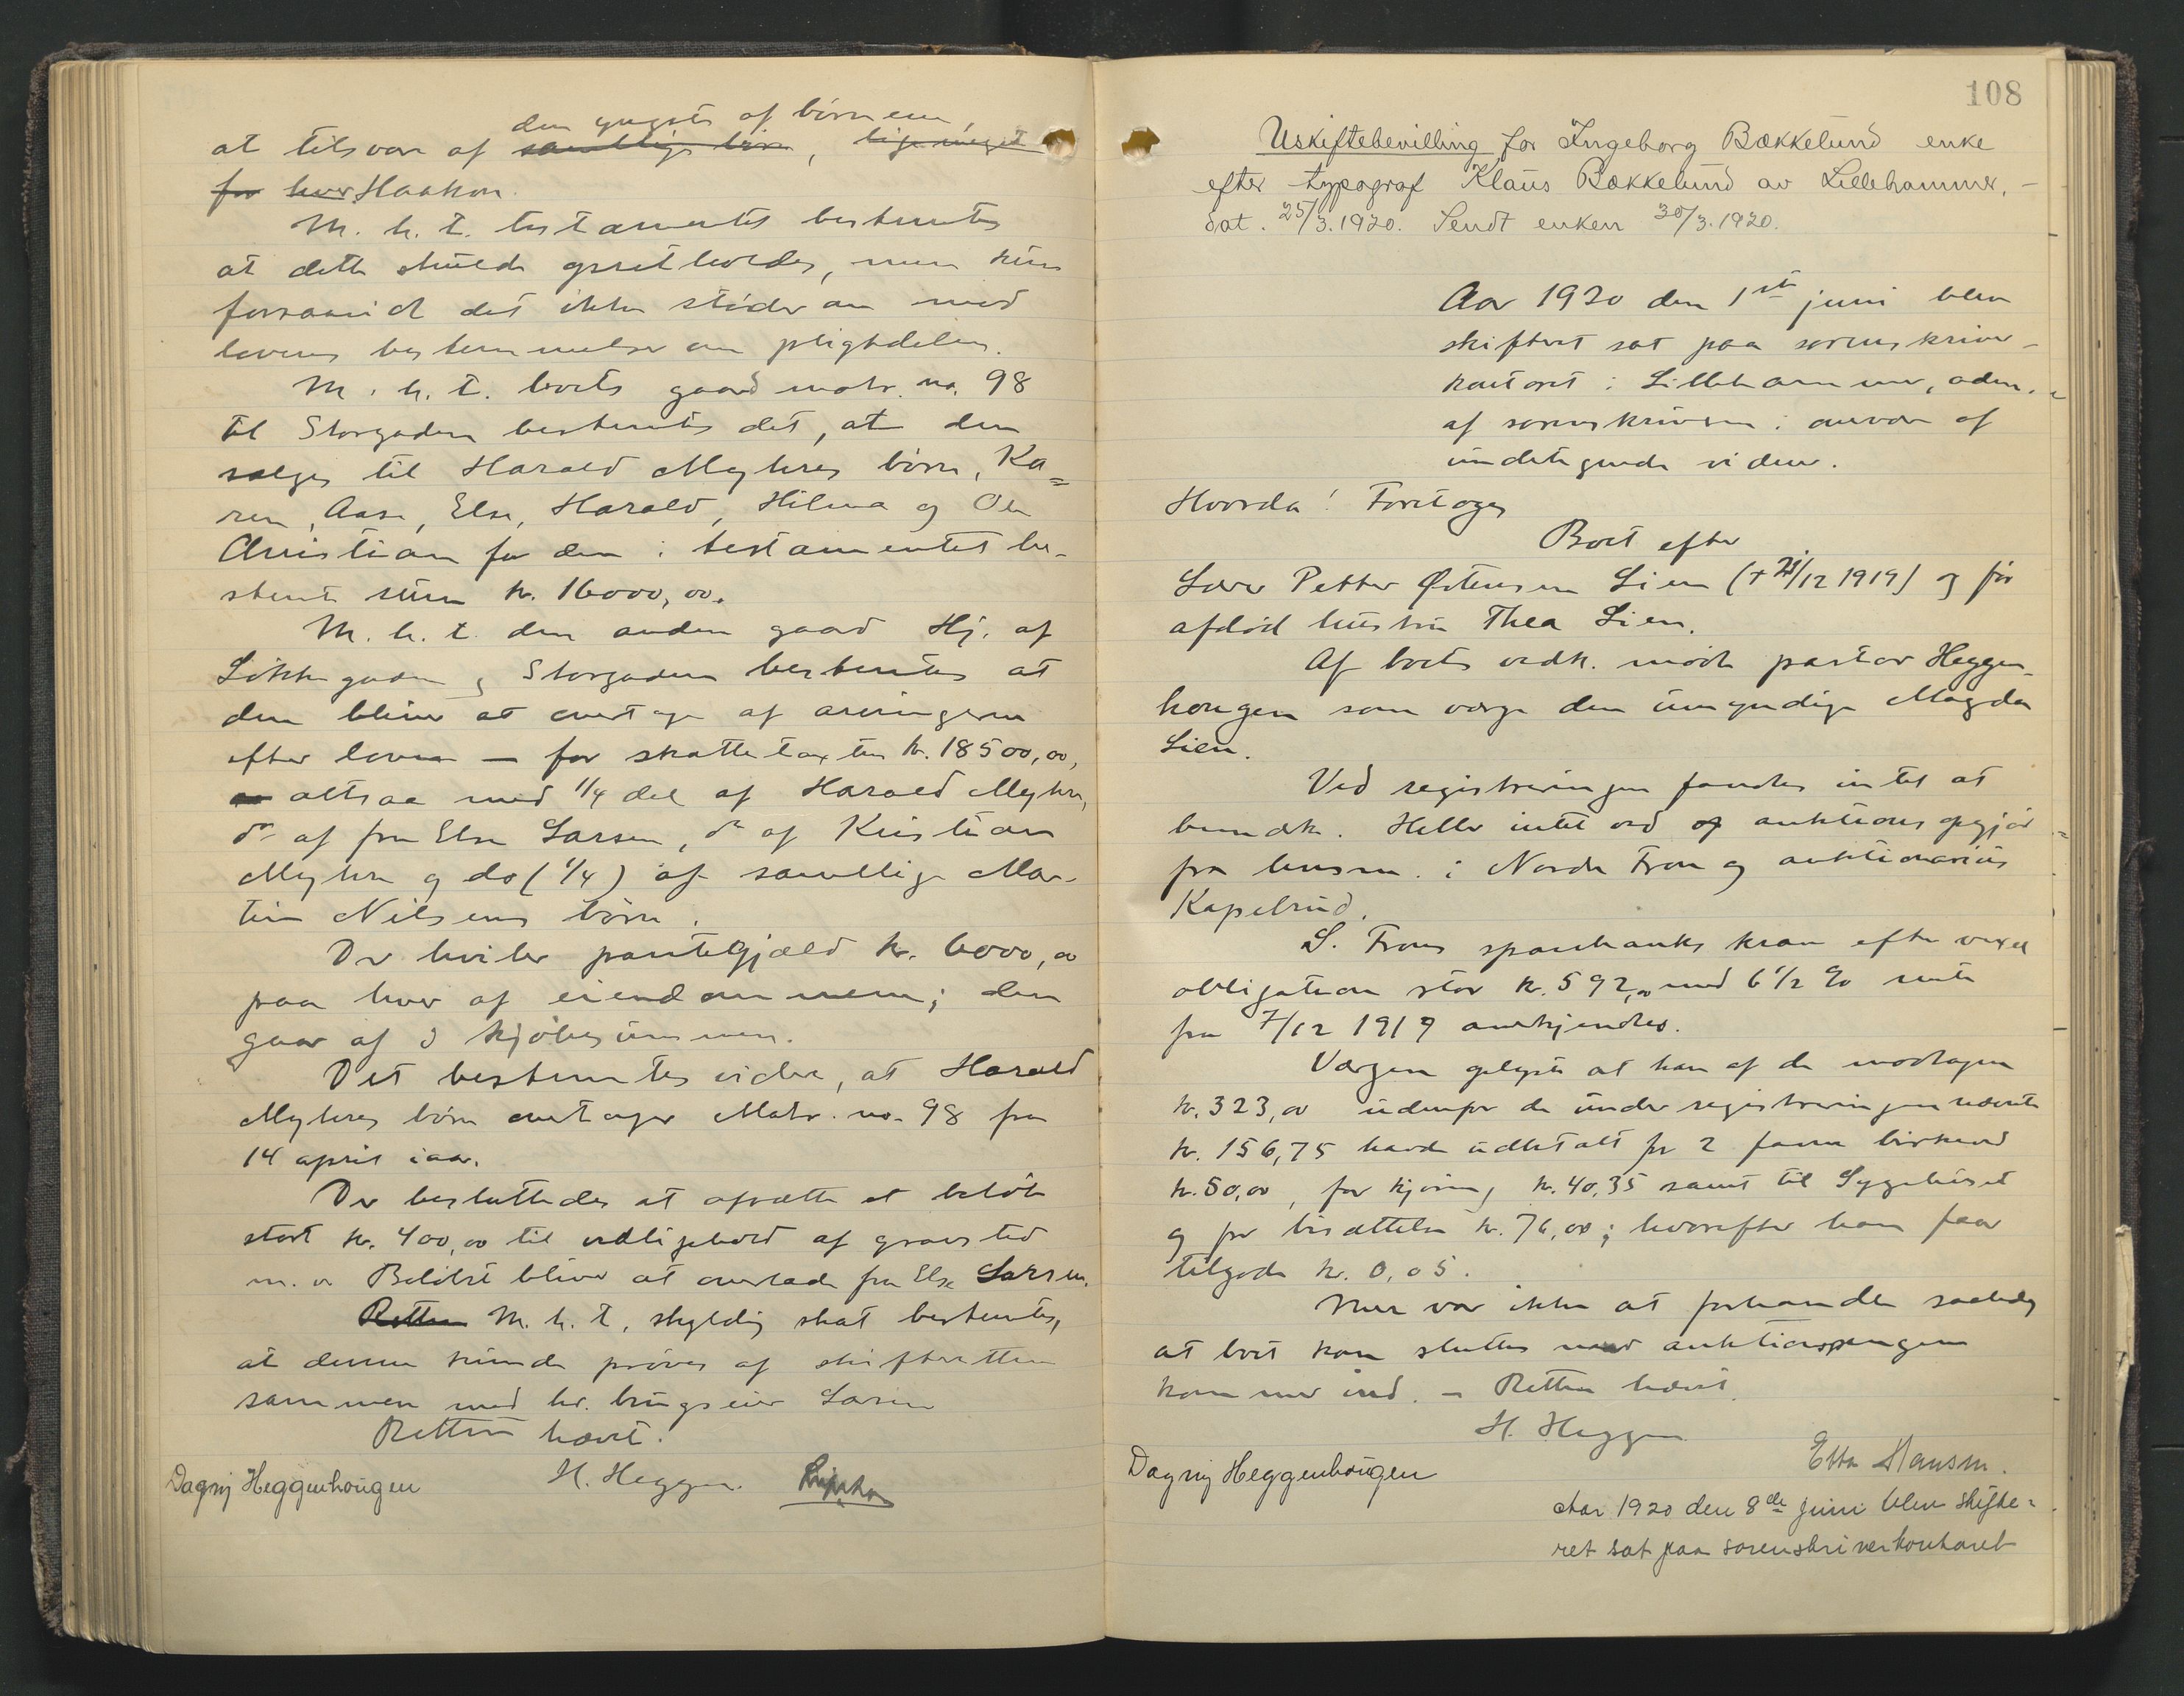 den yngste af börnene,
at tilsvare af samtlige börn, lige meget
for hver Haakon.
M. h. t. testamentet bestemtes
at dette skulde opretholdes, men kun
forsaavidt det ikke stöder an mod
lovens bestemmelser om pligtdelen.
M. h. t. boets gaard matr. no. 98
til Storgaden bestemtes det, at den
sælges til Harald Myhres börn, Ka=
ren, Aase, Else, Harald, Hilma og Ole
Christian for den i testamentet be-
stemte sum kr. 16000,00.
M. h. t. den anden gaard Hj. af
Lökkegaden & Storgaden bestemtes at
den bliver at overtage af arvingerne
efter loven — for skattetaxten kr. 18500,00,
altsaa med 1/4 del af Harald Myhre,
do af fru Else Larsen, do af Kristian
Myhre og do (1/4) af samtlige Mar-
tin Nilsens börn.
Der hviler pantegjæld kr. 6000,00
paa hver af eiendommene; den
gaar af i kjöbesummen.
Det bestemtes videre, at Harald
Myhres börn overtager Matr. no. 98 fra
14 april iaar.
Der besluttedes at afsætte et belöb
stort kr. 400,00 til vedligehold af gravsted
m. v. Belöbet bliver at overlade fru Else Larsen.
Retten M. h. t. skyldig skat bestemtes,
at denne kunde pröves af skifteretten
sammen med hr. brugseier Larsen
Retten hævet.
Dagny Heggenhougen H. Heggen.
108
Uskiftebevilling for Ingeborg Bækkelund enke
efter typograf Klaus Bækkelund av Lillehammer, -
dat. 25/3. 1920. Sendt enken 30/3. 1920.
Aar 1920 den 1ste juni blev
skifteret sat paa sorenskriver-
kontoret i Lillehammer, adm.
af sorenskriveren i overvær af
undertegnede vidner.
Hvorda! Foretoges
Boet efter
Lars Petter Østensen Lien († 21/12 1919) og för
afdöd hustru Thea Lien.
Af boets vedk. mödte pastor Heggen-
hougen som værge den umyndige Magda
Lien.
Ved registreringen fandtes intet at
bemærke. Heller intet ved af auktions opgjör=
fra lensm. i Nordre Fron og auktionarius
Kapelrud.
S. Frons sparebanks krav efter vexel
obligation stor kr. 592,00 med 6 1/2 % rente
fra 7/12 1919 anerkjendtes.
Værgen oplyste at han af de modtagne
kr. 323,00 udenfor de under registreringen nævnte
kr. 156,75 havde udbetalt for 2 favne birkeved
kr. 50,00, for kjöring kr. 40,35 samt til Sygehuset
og for bisættelse kr. 76,00; hvorefter han faar
tilgode kr. 0,05.
Mere var ikke at forhandle saaledes
at boet kan sluttes naar auktionspengene
kommer ind. — Retten hævet.
H. Heggen
Dagny Heggenhougen Etta Hansen.
Aar 1920 den 8de juni blev skifte=
ret sat paa sorenskriverkontoret